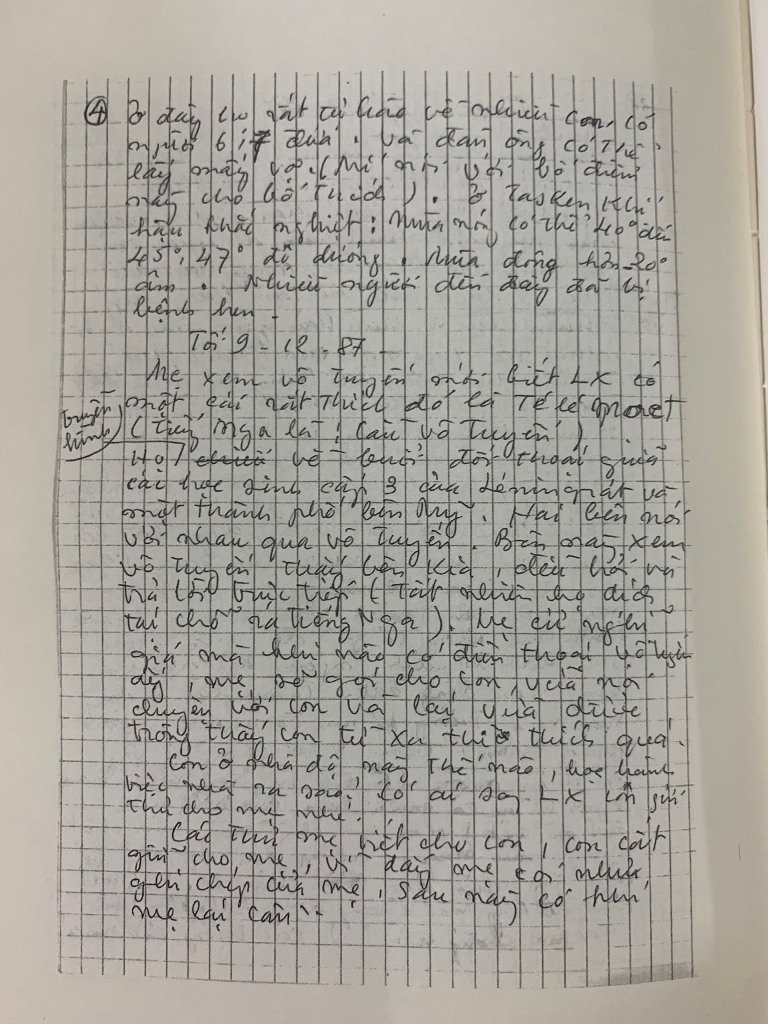 ④ Ở đây họ rất tự hào về nhiều con, có
người 6, 7 đứa. Và đàn ông có thể
lấy mấy vợ. (Mẹ nói với bố điều
này cho bố thích). Ở Tasken khí
hậu khắc nghiệt: Mùa nóng có thể 40° đến
45°, 47° độ dương. Mùa đông hơn 20°
âm. Nhiều người đến đây đã bị
bệnh hen.
Tối 9-12-87
Mẹ xem vô tuyến mới biết LX có
truyền hình
một cái rất thích đó là Télé
(tiếng Nga là: Cầu vô tuyến)
Họ về buổi đối thoại giữa
các học sinh cấp 3 của Lêningrát và
một thành phố bên Mỹ. Hai bên nói
với nhau qua vô tuyến. Bên này xem
vô tuyến thấy bên kia, đều hỏi và
trả lời trực tiếp (tất nhiên họ dịch
tại chỗ ra tiếng Nga). Mẹ cứ nghĩ
giá mà hôm nào có điện thoại vô tuyến
ấy, mẹ sẽ gọi cho con, vừa nói
chuyện với con và lại vừa được
trông thấy con từ xa thì thích quá.
Con ở nhà độ này thế nào, học hành
việc nhà ra sao? Có gì LX con gửi
thư cho mẹ nhé!
Các thư mẹ viết cho con, con cất
giữ cho mẹ, vì đấy mẹ coi như
ghi chép của mẹ, sau này có khi
mẹ lại cần..